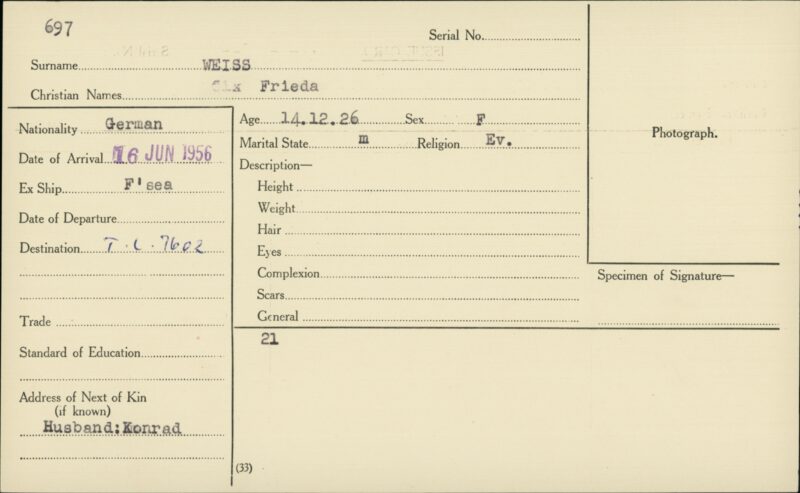 697
Serial No.
Surname WEISS
Christian Names Frieda
Nationality German
Date of Arrival 16 JUN 1956
Ex Ship F'sea
Date of Departure
Destination T.C. 7602
Trade
Standard of Education
Address of Next of Kin
(if known)
Husband:Konrad
Age 14.12.26 Sex F
Marital State m Religion Ev.
Description—
Height
Weight
Hair
Eyes
Complexion
Scars
General
21
(33)
Photograph.
Specimen of Signature—